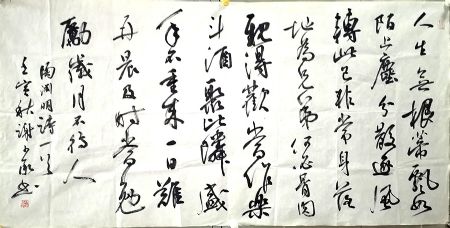 人生無根蒂飄如
陌上塵分散逐風
轉此已非常身落
地為兄弟何必骨肉
親得歡當作樂
斗酒聚比鄰盛
年不重來一日難
再晨及時當勉
勵歲月不待人
陶淵明詩一首
壬寅秋謝少書